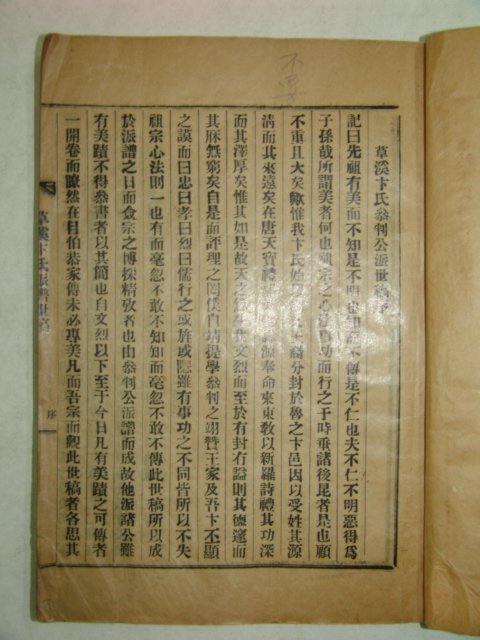 不要
草溪卞氏參判公派世稿序
記曰先祖有美而不知是不明也知而不傳是不仁也夫不仁不明惡得爲
子孫哉所謂美者何也祖宗之心法事功而行之于時垂諸後昆者是也顧
不重且大矣歟惟我卞氏始 分封於魯之卞邑因以受姓其源
淸而其來遠矣在唐天寶禮 源奉命來東敎以新羅詩禮其功深
而其澤厚矣惟其如是故天之 而至於有封有謚則其德邃而
其庥無窮矣自是而評理之 僕自靖提學參判之翊贊王家及吾卞丕顯
之謨而曰忠曰孝曰烈曰儒行之或旌或隱雖有事功之不同皆所以不失
祖宗心法則一也有而毫忽不敢不知知而毫忽不敢不傳此世稿所以成
於派譜之日而僉宗之博採精攷者也由參判公派譜而成故他派諸公雖
有美蹟不得參書者以其簡也自文烈以下至于今日凡有美蹟之可傳者
一開卷而瞭然在目伯恭家傳未必專美凡而吾宗而觀此世稿者各思其
草溪卞氏派譜世稿 序 一